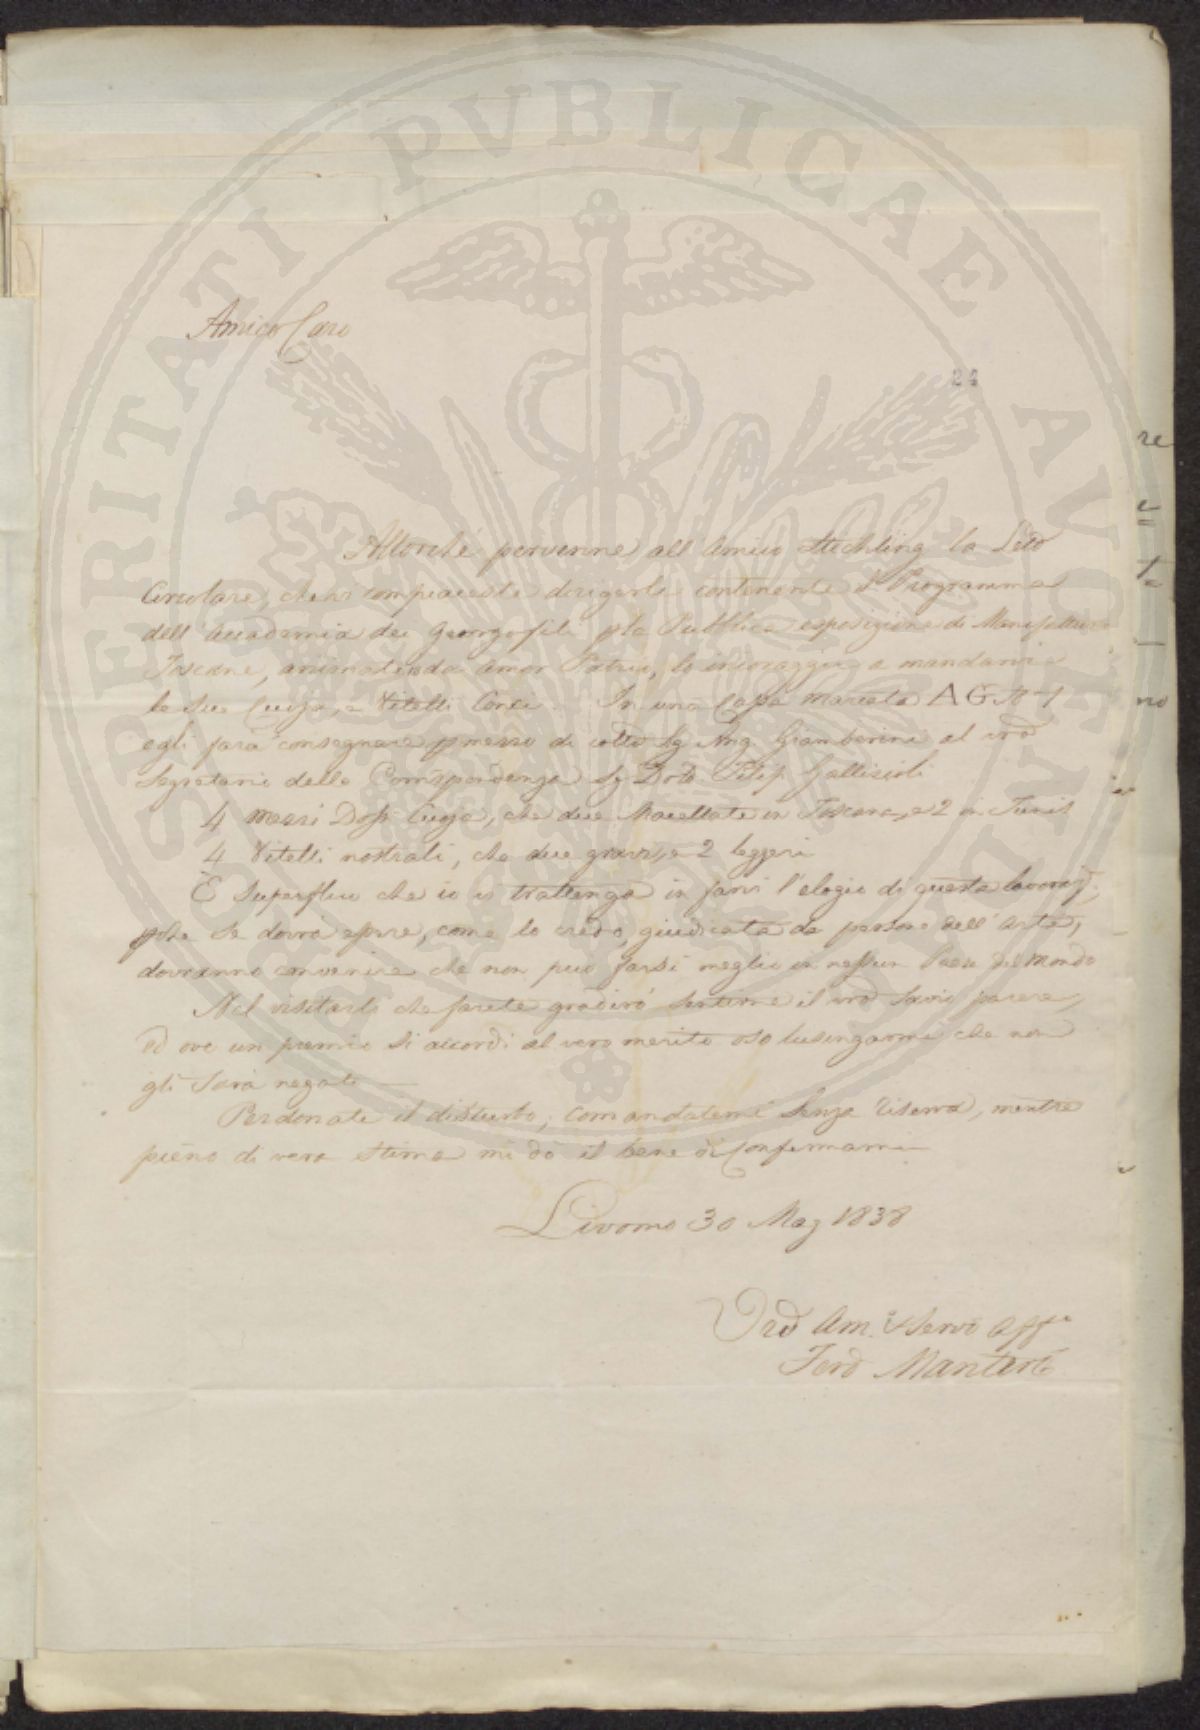 PROSPERITATI PVBLICAE AVGENDAE
Amico Caro
24
Allorchè pervenne all'Amico Stichling la
Circolare, che vi compiaceste dirigerli contenente il Programma
dell'Accademia dei Georgofili p la Pubblica esposizione di Manifatture
Toscane, animato da amor Patrio, lo incoraggii a mandarvi
le sue Cuoja, e Vitelli Conci. In una Cassa marcata AG No 1
egli farà consegnare p mezzo di cotto Sg Ang. Giamberini al vro
Segretario della Corrispondenza Sg Dotto. Filip. Gallizioli
4 mezzi Dossi Cuoja, che due Macellate in Toscana, e 2 in Tunis
4 Vitelli nostrali, che due gravi, e 2 leggeri
È superfluo che io vi trattenga in farvi l'elogio di questo lavoro,
se dovrà essere, come lo credo, giudicata da persone dell'arte,
dovranno convenire che non può farsi meglio in nessun Paese del Mondo
Nel visitarli che farete gradirò sentirne il vro savio parere,
ed ove un premio si accordi al vero merito oso lusingarmi che non
gli sarà negato —
Perdonate il disturbo, comandatemi senza riserva, mentre
pieno di vera stima mi do il bene di Confermarmi
Livorno 30 Mag 1838
Vro Am. e Servo Aff
Ferd Manteri